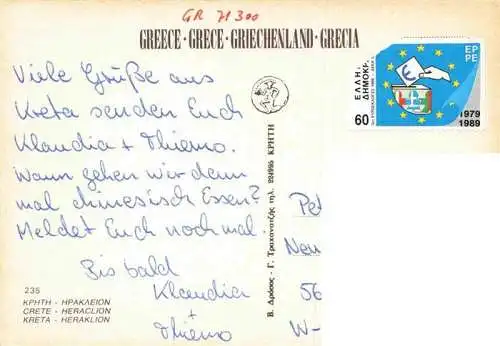 GR 71300
GREECE · GRECE · GRIECHENLAND · GRECIA
Viele Grüße aus
Kreta senden Euch
Klaudia + Thiemo.
Wann gehen wir denn
mal chinesisch Essen?
Meldet Euch noch mal.
Bis bald
Klaudia
+
Thiemo
235
ΚΡΗΤΗ - ΗΡΑΚΛΕΙΟΝ
CRETE - HERACLION
KRETA - HERAKLION
Β. Δρόσος - Γ. Τραχανατζής τηλ. 224995 ΚΡΗΤΗ
ΕΛΛΗ.
ΔΗΜΟΚΡ.
60
ΕΡ
ΡΕ
1979
1989
Pet
Neu
56
W-